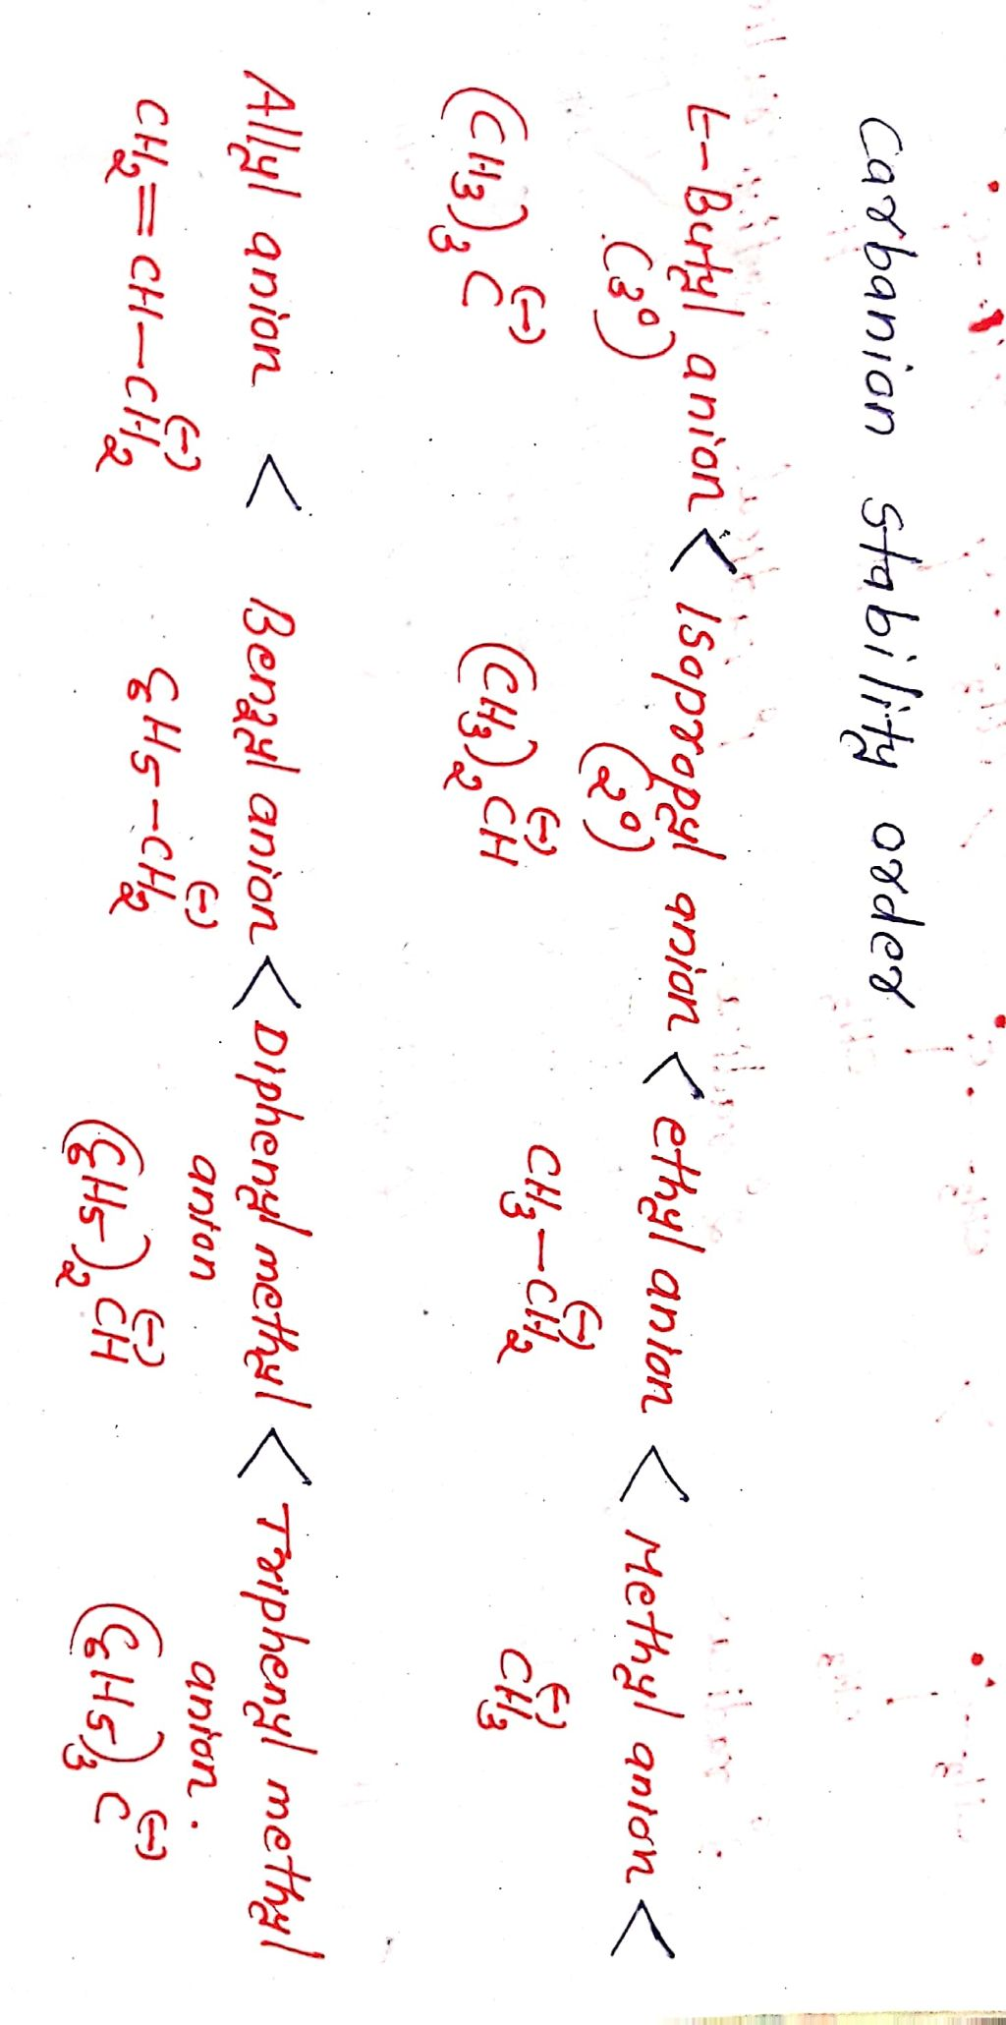 Carbanion Stability order
t-Butyl anion < Isopropyl anion < ethyl anion < Methyl anion <
(3°) (2°)
(CH3)3 C(-) (CH3)2 CH(-) CH3-CH2(-) CH3(-)
Allyl anion < Benzyl anion < Diphenyl methyl < Triphenyl methyl
anion anion.
CH2=CH-CH2(-) C6H5-CH2(-) (C6H5)2 CH(-) (C6H5)3 C(-)